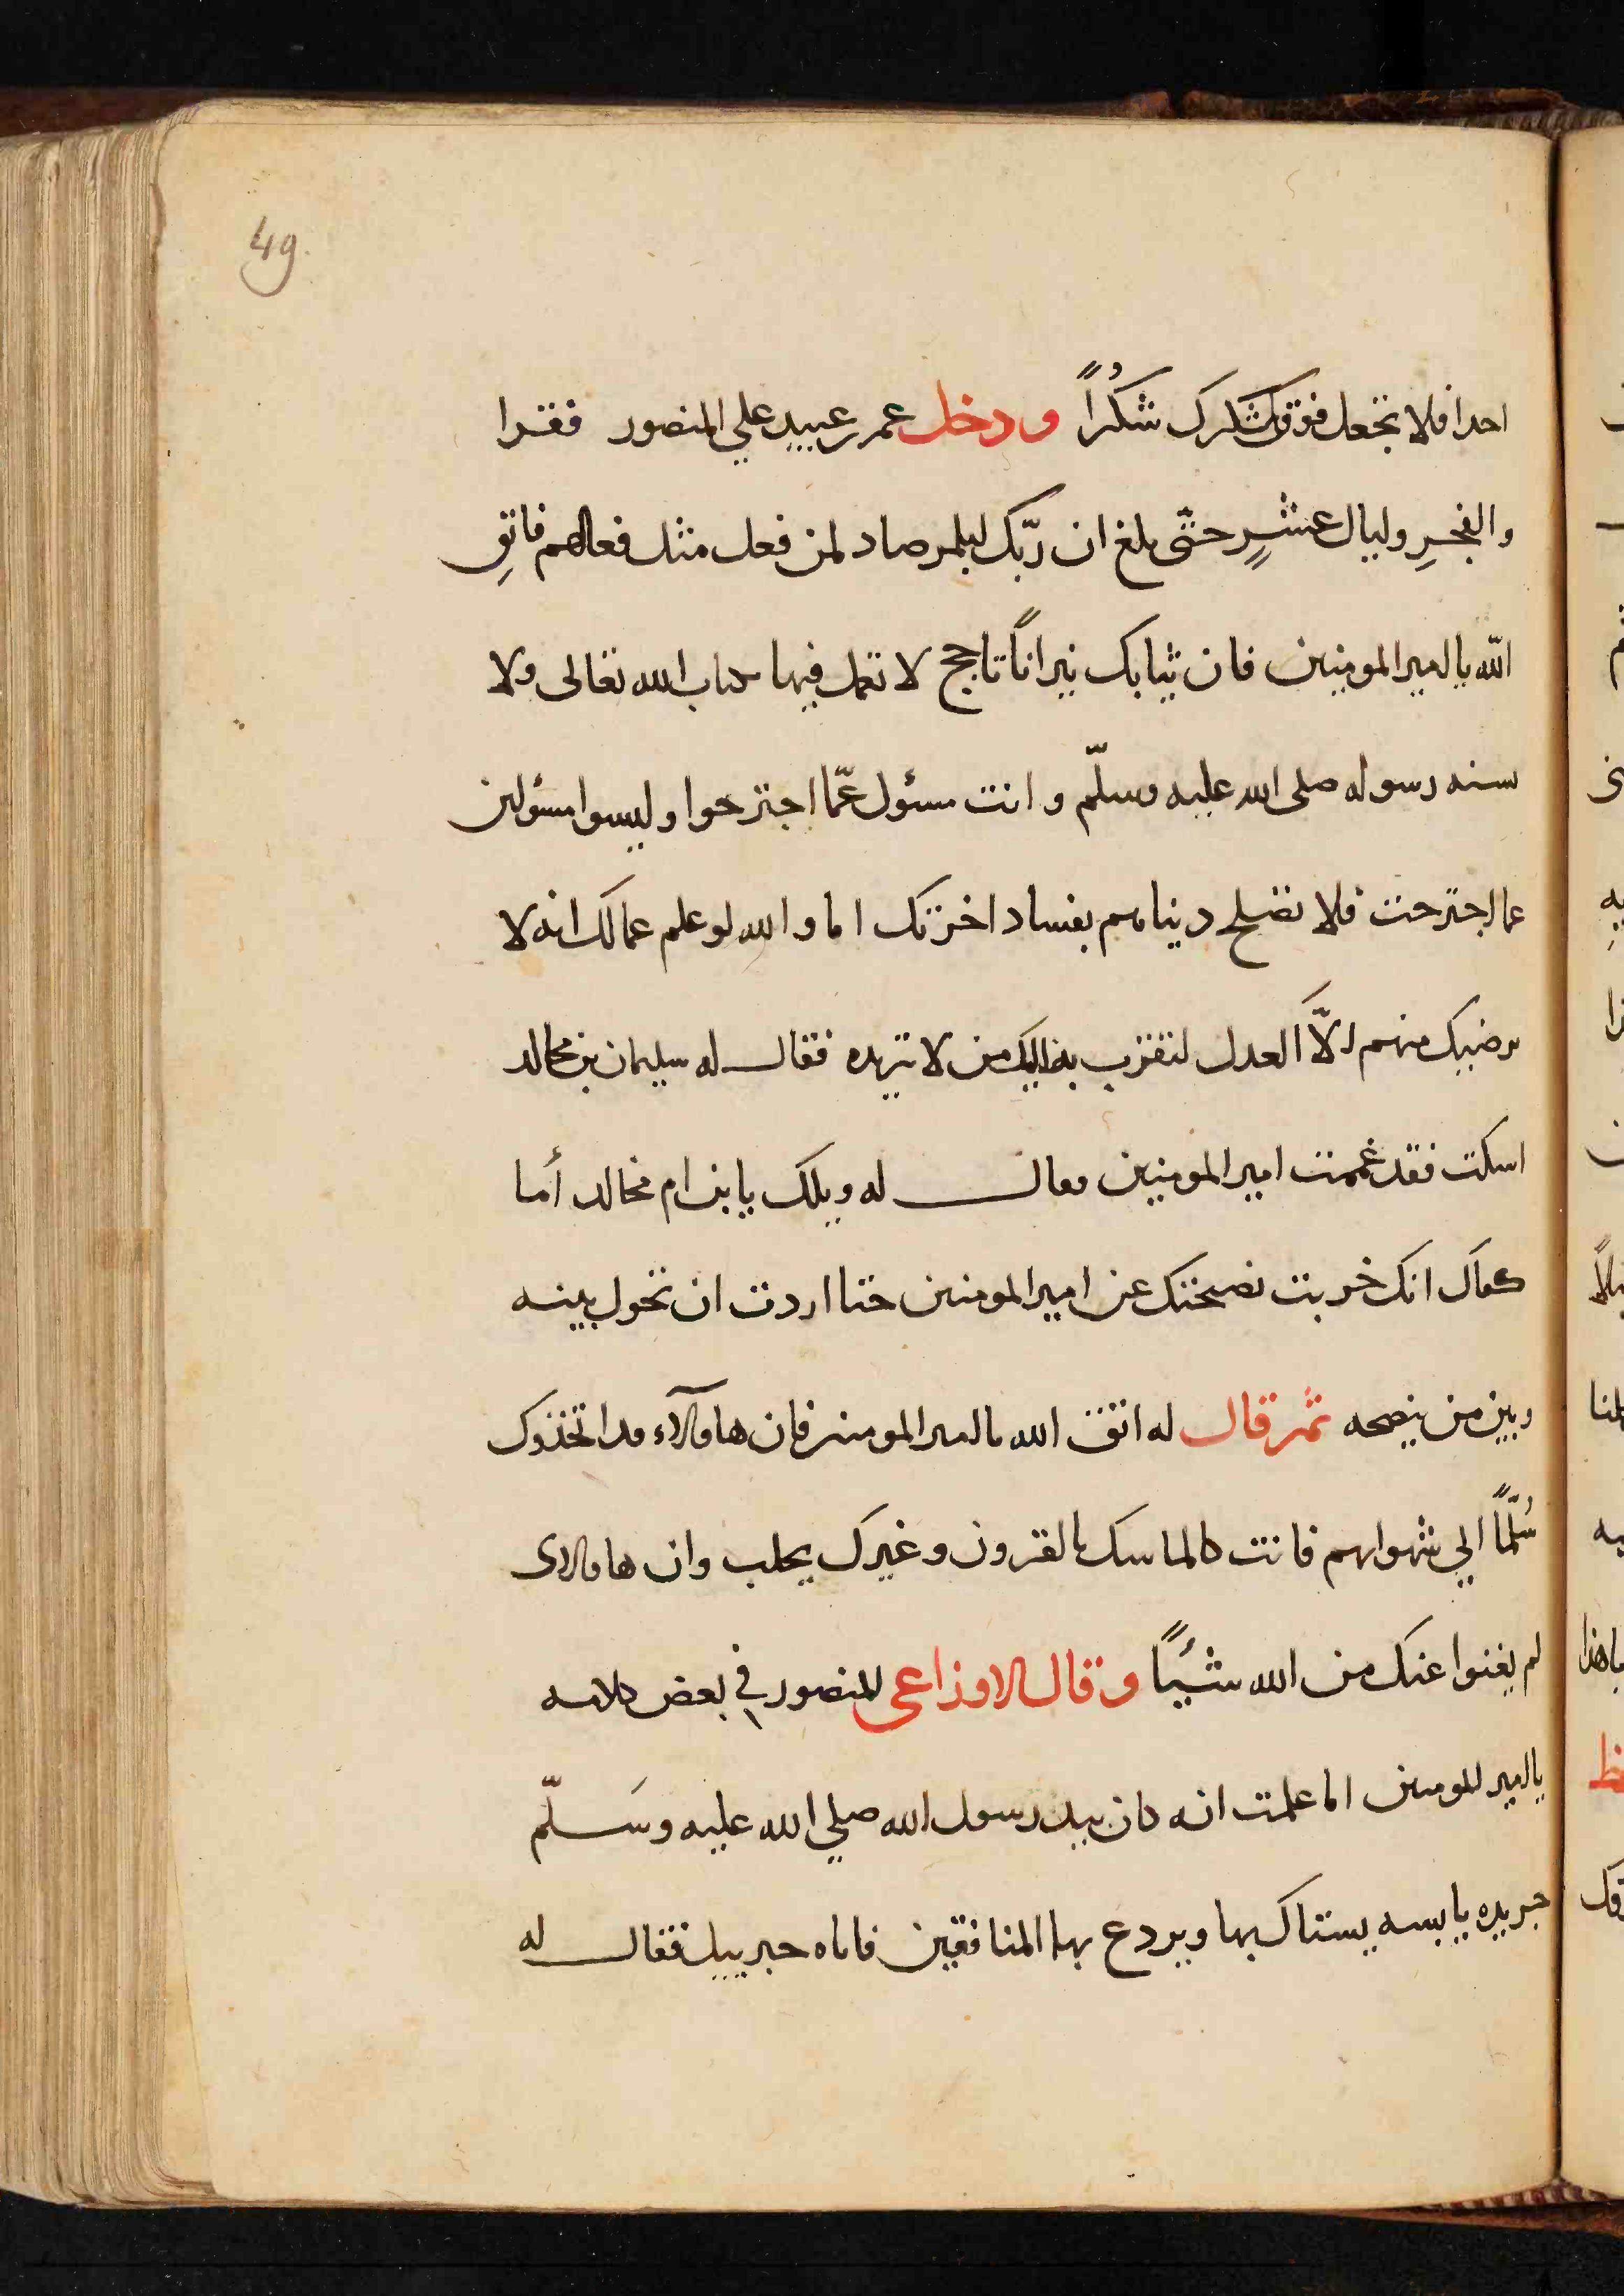 49.
احدا فلا تجعل فوق شكرك شكرًا ودخل عمر بن عبيد علي المنصور فقرا
والفجرِ وليال عشرٍ حتّى بلغ ان ربّك لبلمرصاد لمن فعل مثل فعالهم فاتقِ
الله يا امير المومنين فان ببابك نيرانًا تاجج لا تعمل فيها بكتاب الله تعالى ولا
سنه رسوله صلى الله عليه وسلّم وانت مسئول عمّا اجترحوا وليسوا مسئولين
عما اجترحت فلا تصلح دنياهم بفساد اخرتك اما والله لو علم عمالك انه لا
يرضيك منهم الّا العدل لتقرب به اليك من لا تريده فقال له سليمان بن مجالد
اسكت فقد غممت امير المومنين فقال له ويلك يا بن ام مخالد أما
كفاك انك خربت نصيحتك عن امير المومنين حتا اردت ان تحول بينه
وبين من ينصحه ثم قال له اتق الله يا امير المومنين فان هاولآء قد اتخذوك
سُلّمًا الي شهواتهم فانت كالماسك بالقرون وغيرك يحلب وان هاولاى
لم يغنوا عنك من الله شيئًا وقال الاوزاعي للمنصور في بعض كلامه
يا امير المومنين اما علمت انه كان بيد رسول الله صلي الله عليه وسَلّم
جريده يابسه يستاك بها ويردع بها المنافقين فاتاه جبرييل فقال له